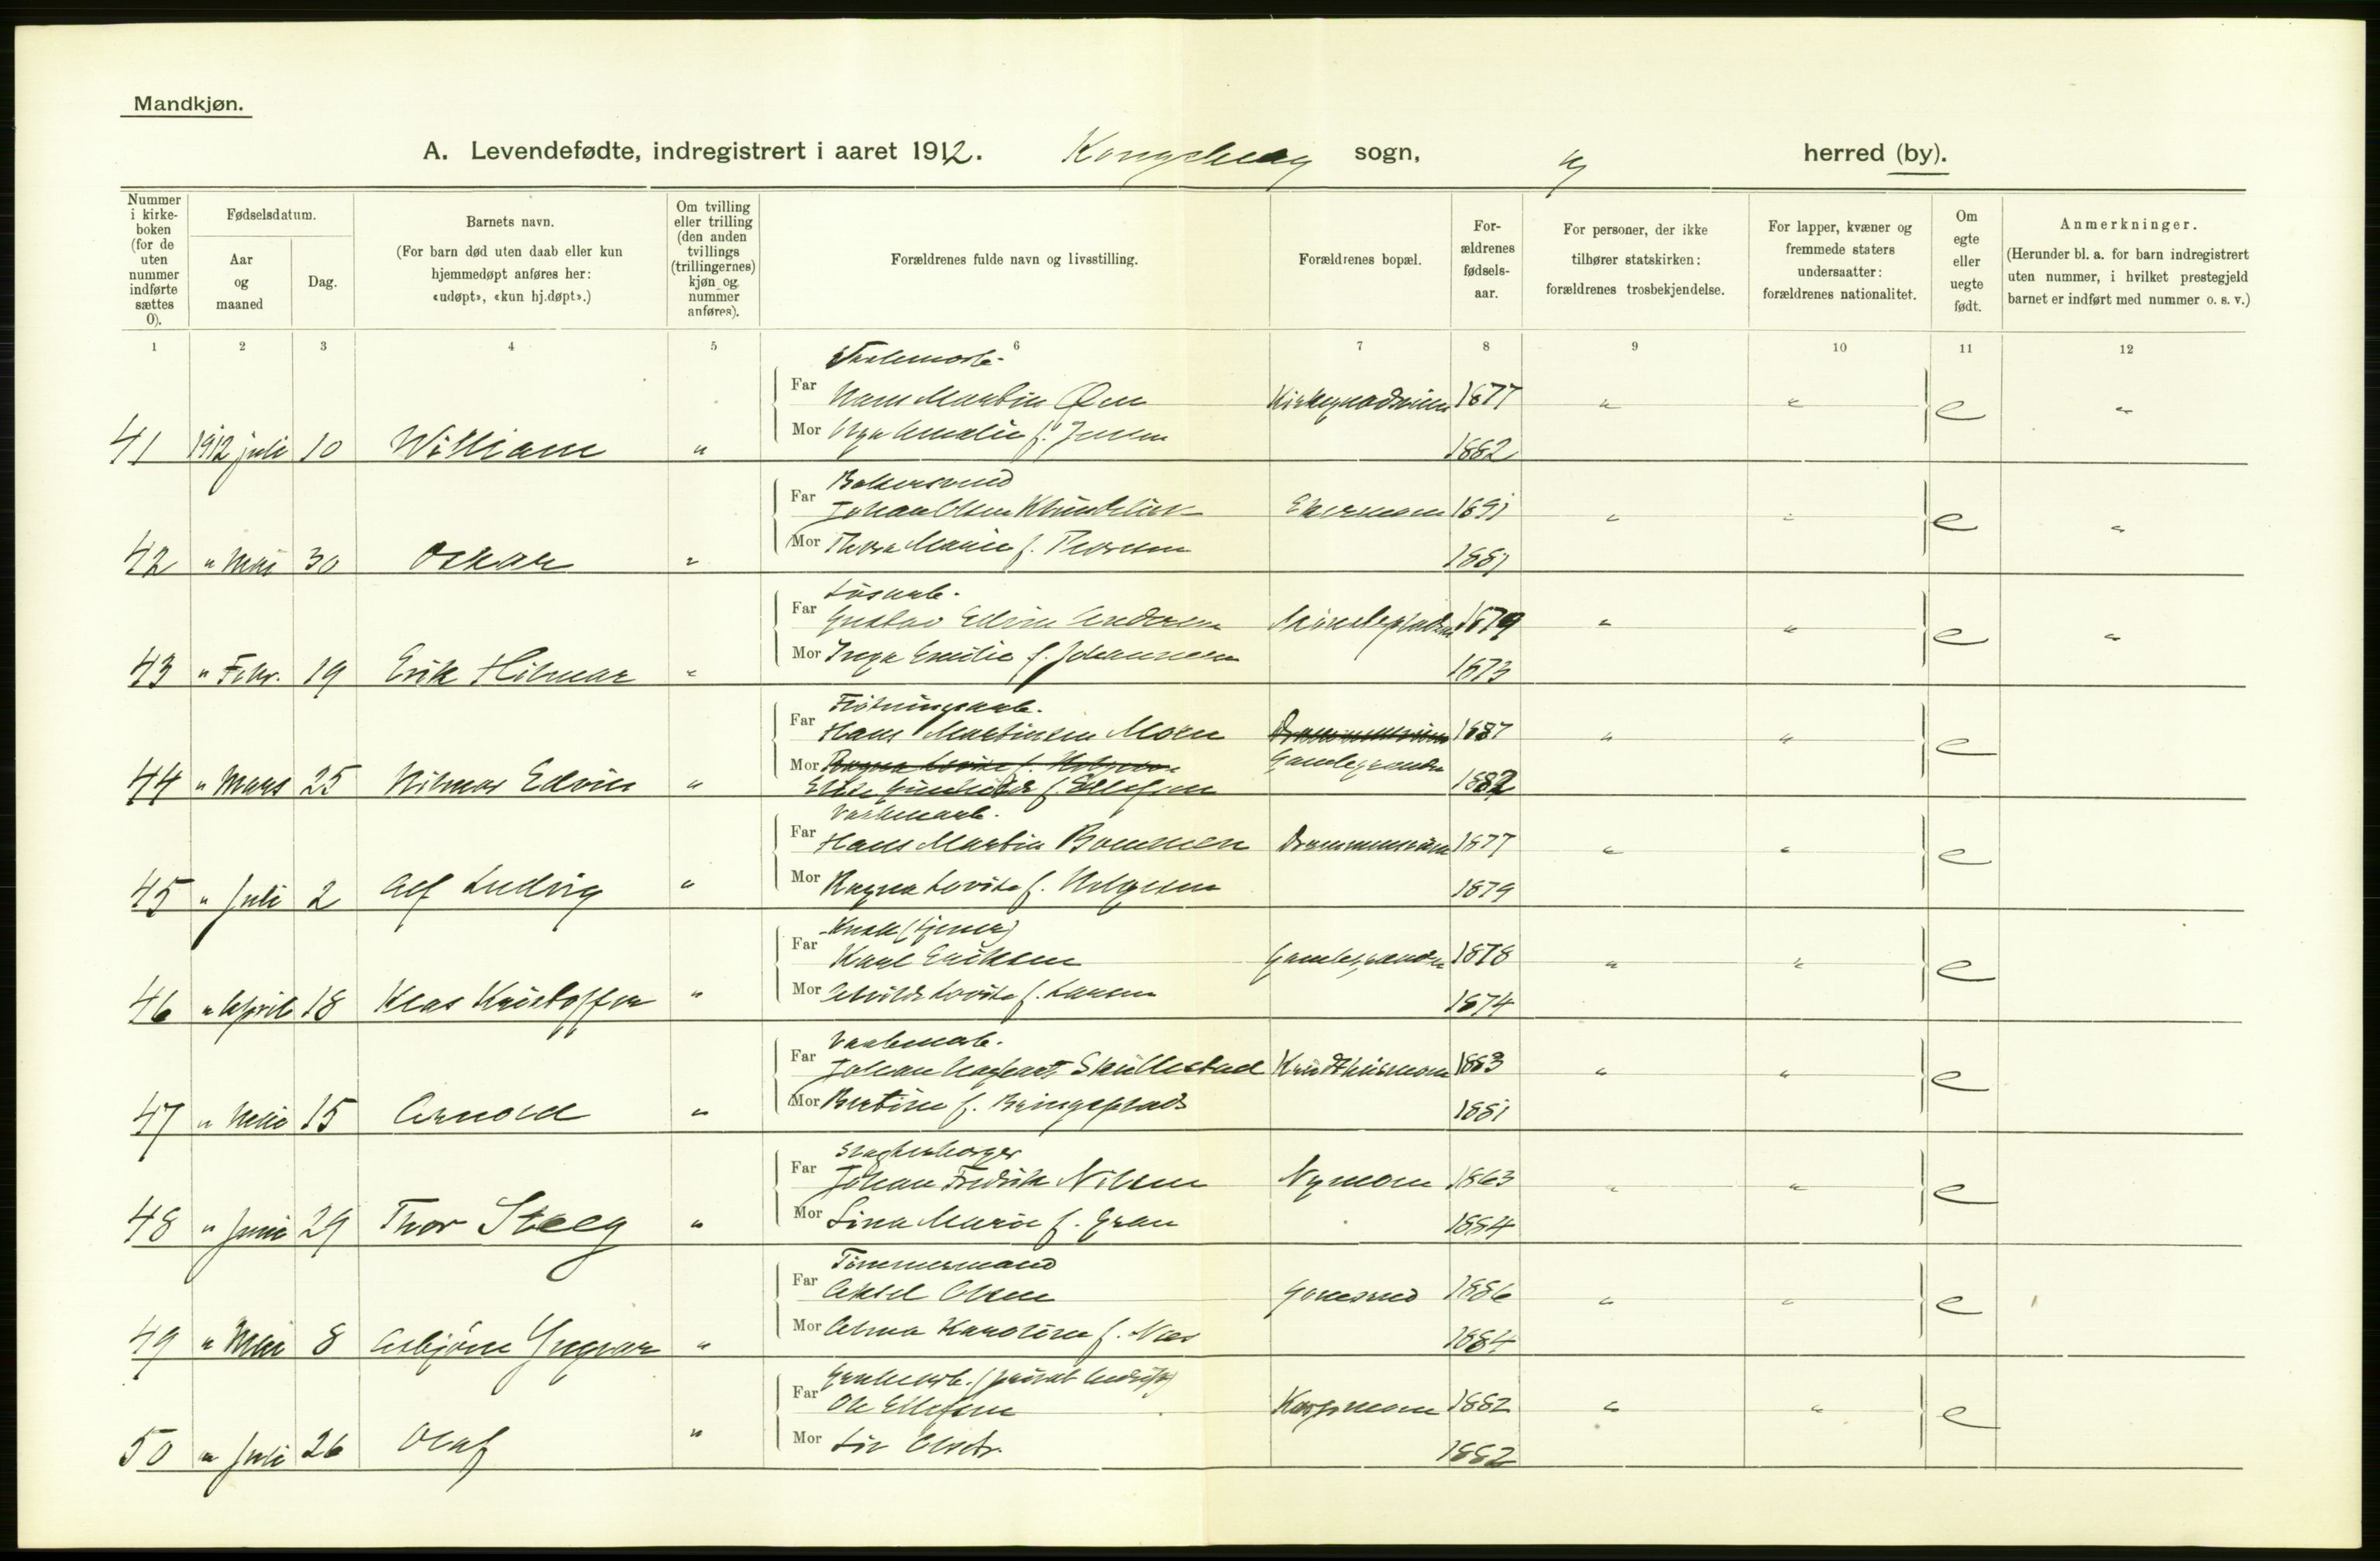 Mandkjøn.
A. Levendefødte, indregistrert i aaret 1912. Kongsberg sogn, " herred (by).
Nummer i kirke-boken (for de uten nummer indførte sættes 0).
Fødselsdatum.
Aar og maaned
Dag.
Barnets navn.
(For barn død uten daab eller kun hjemmedøpt anføres her: «udøpt», «kun hj.døpt».)
Om tvilling eller trilling (den anden tvillings (trillingernes) kjøn og nummer anføres).
Forældrenes fulde navn og livsstilling.
Forældrenes bopæl.
For-ældrenes fødsels-aar.
For personer, der ikke tilhører statskirken: forældrenes trosbekjendelse.
For lapper, kvæner og fremmede staters undersaatter: forældrenes nationalitet.
Om egte eller uegte født.
Anmerkninger.
(Herunder bl. a. for barn indregistrert uten nummer, i hvilket prestegjeld barnet er indført med nummer o. s. v.)
1 2 3 4 5 6 7 8 9 10 11 12
Far Hans Martin Øen 1877 " " e "
Mor f. Jensen
41 1912 juli 10 William " 1882
Far 1891 " " e "
Mor Thora Marie f.
42 " Mai 30 Oskar " 1881
Løsarb.
Far Gustav Edvin Andersen 1879 " " e "
Mor Inga Emilie f. Johannesen
43 " Febr. 19 Erik Hilmar " 1873
Fløtningsarb.
Far Hans Martinsen Moen 1887 " " e
Mor Gamlegrænden
44 " Mars 25 Hilmar Edvin " f. Ellefsen 1882
Far Hans Martin Bommen Drammensveien 1877 " " e
Mor Ragna Lovise f. Helgesen
45 " Juli 2 Alf Ludvig " 1879
Far Karl Eriksen Gamlegrænden 1878 " " e
Mor Lovise f. Larsen
46 " April 18 Klas Kristoffer " 1874
Far Johan Skullestad 1883 " " e
Mor Bertine f. Bringeplads
47 " Mai 15 Arnold " 1881
Far Johan Fredrik Nilsen Nymoen 1863 " " e
Mor Lina Marie f. Gran
48 " Juni 29 Thor Steeg " 1884
Tømmermand
Far Aksel Olsen 1886 " " e
Mor Alma Karoline f. Næs
49 " Mai 8 Asbjørn Yngvar " 1884
Far Ole Ellefsen 1882 " " e
Mor Liv Olsdtr.
50 " Juli 26 Olaf " 1882